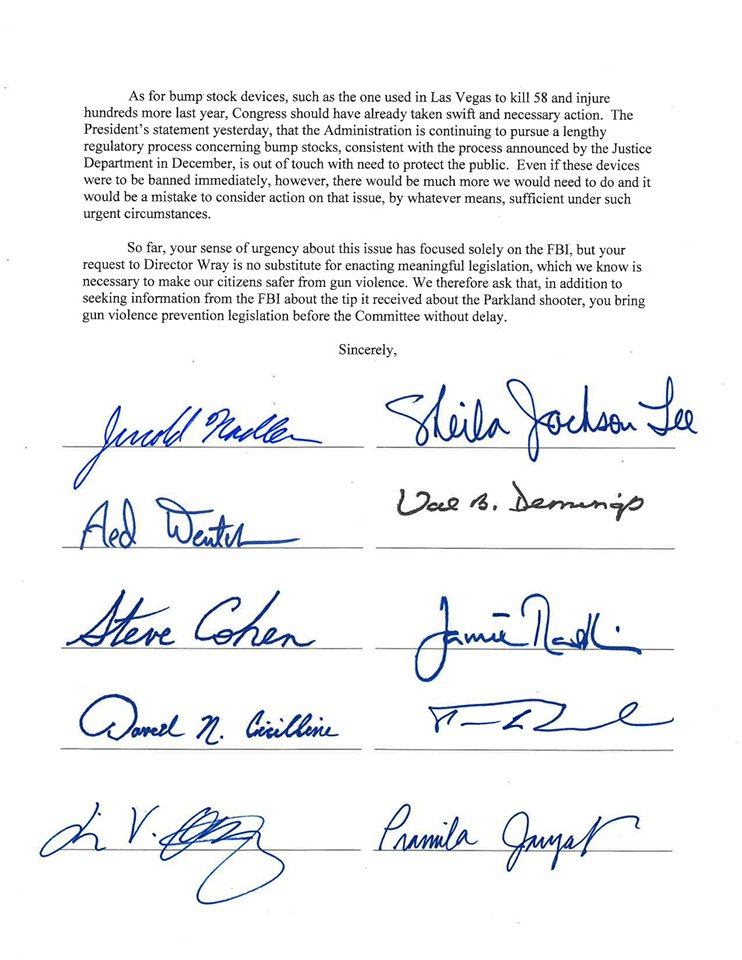 As for bump stock devices, such as the one used in Las Vegas to kill 58 and injure
hundreds more last year, Congress should have already taken swift and necessary action. The
President's statement yesterday, that the Administration is continuing to pursue a lengthy
regulatory process concerning bump stocks, consistent with the process announced by the Justice
Department in December, is out of touch with need to protect the public. Even if these devices
were to be banned immediately, however, there would be much more we would need to do and it
would be a mistake to consider action on that issue, by whatever means, sufficient under such
urgent circumstances.
So far, your sense of urgency about this issue has focused solely on the FBI, but your
request to Director Wray is no substitute for enacting meaningful legislation, which we know is
necessary to make our citizens safer from gun violence. We therefore ask that, in addition to
seeking information from the FBI about the tip it received about the Parkland shooter, you bring
gun violence prevention legislation before the Committee without delay.
Sincerely,
Jerrold Nadler
Sheila Jackson Lee
Val B. Demings
Steve Cohen
Jamie
David N. Cicilline
V.
Pramila Jayapal